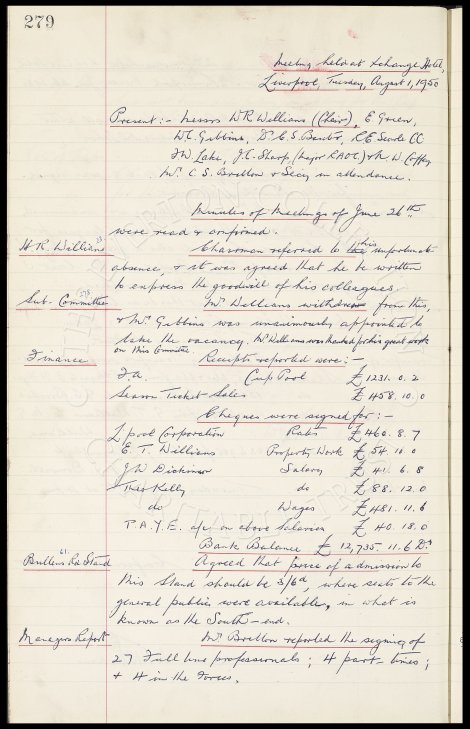 279
Meeting held at Exchange Hotel,
Liverpool, Tuesday, August 1, 1950
Present :- Messrs W R Williams (Chair), E Green,
W C Gibbins, Dr C S Baxter, R E Searle CC
F W Lake, J C Sharp, (Major RAOC) & A W Coffey
Mr. C S Britton & Secy in attendance.
Minutes of Meetings of June 26th
were read & confirmed.
H R. Williams Chairman referred to his unfortunate
absence, & it was agreed that he be written
to express the goodwill of his colleagues.
Sub-Committee 278 Mr Williams withdrew from this,
& Mr. Gibbins was unanimously appointed to
take the vacancy. Mr Williams was thanked for his great work
on this Committee.
Finance Receipts reported were:-
F.A. Cup Pool £ 1231. 0. 2
Season Ticket Sales £ 1458. 10. 0
Cheques were signed for:-
L'pool Corporation Rates £ 460. 8. 7
E. T. Williams Property Work £ 54. 16. 0
J W Dickinson Salary £ 41. 6. 8
Theo Kelly do £ 88. 12. 0
do Wages £ 481. 11. 6
P.A.Y.E. a/c on above Salaries £ 40. 18. 0
Bank Balance £ 12,735. 11. 6 Dr.
Bullens Rd Stand Agreed that price of admission to
this Stand should be 3/6d, where seats to the
general public were available, in what is
known as the South-end.
Managers Report Mr Britton reported the signing of
27 Full time professionals; 4 part-times;
+ 4 in the Forces.